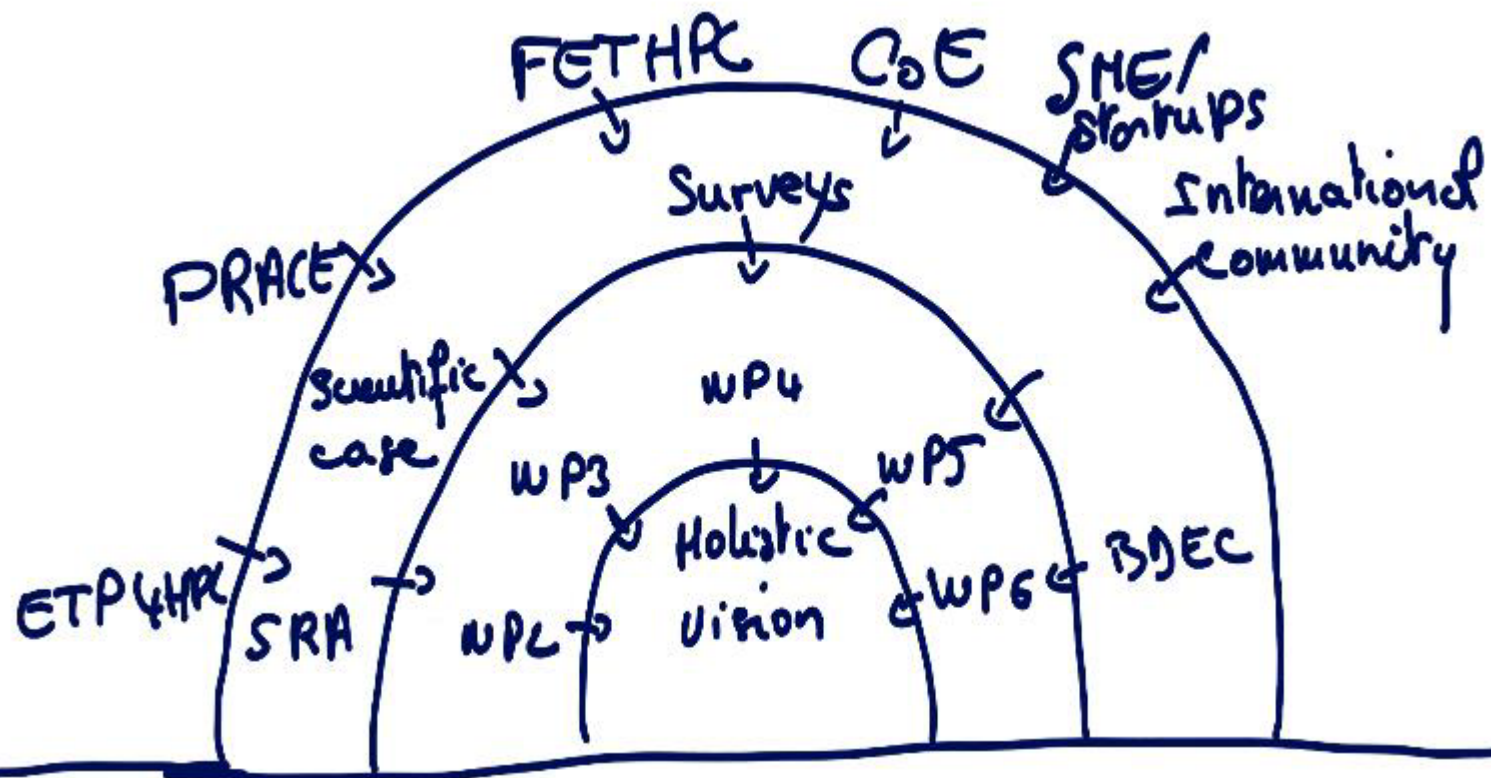 FETHPC
CoE
SME/
startups
International
community
Surveys
PRACE
Scientific
case
WP4
WP3
WP5
Holistic
vision
ETP4HPC
SRA
WP2
WP6
BDEC